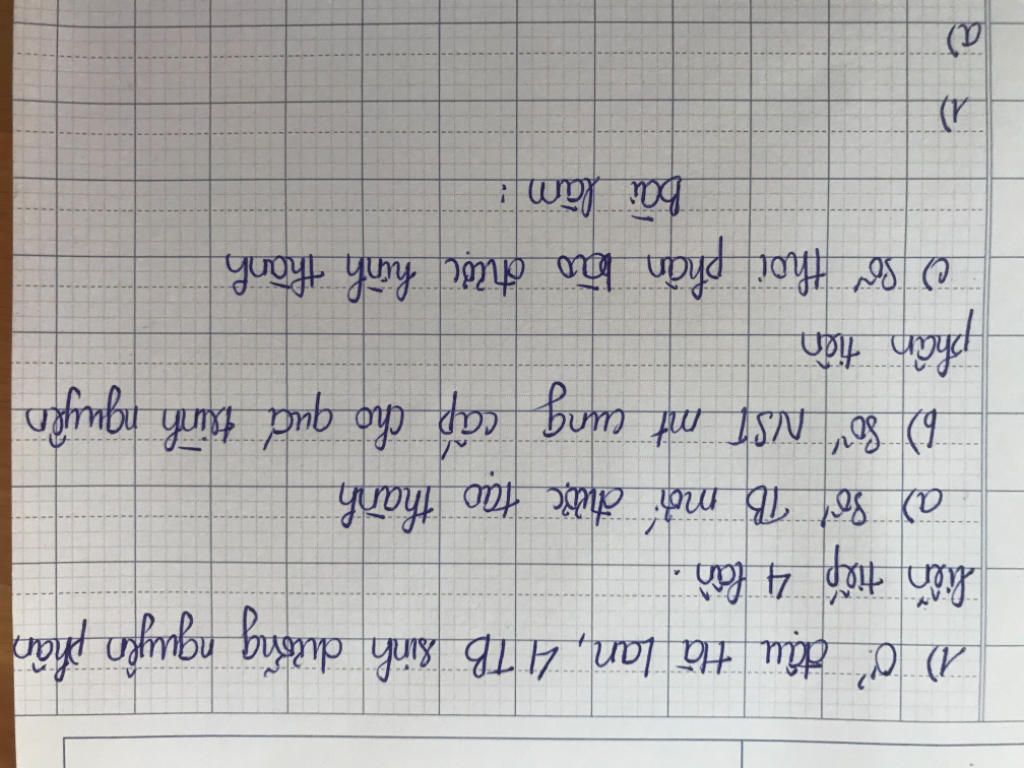 1) Ở đậu Hà Lan, 4 TB sinh dưỡng nguyên phân
liên tiếp 4 lần.
a) Số TB mới được tạo thành
b) Số NST mt cung cấp cho quá trình nguyên
phân tiên
c) Số thoi phân bào được hình thành
Bài làm :
1)
a)